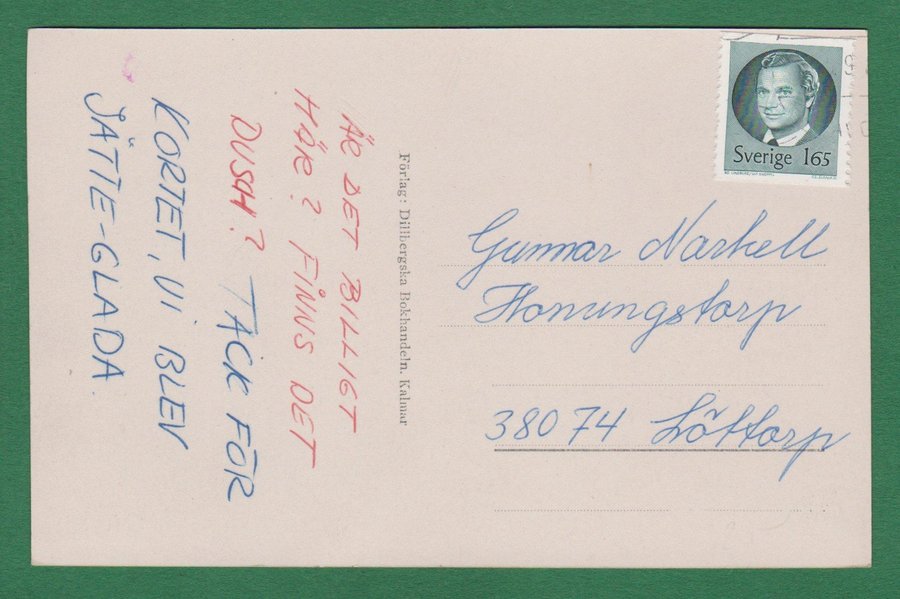 ÄR DET BILLIGT
HÄR? FINNS DET
DUSH? TACK FÖR
KORTET, VI BLEV
JÄTTE-GLADA
Förlag: Dillbergska Bokhandeln. Kalmar
Sverige 165
Gunnar Narkell
Honungstorp
38074 Löttorp